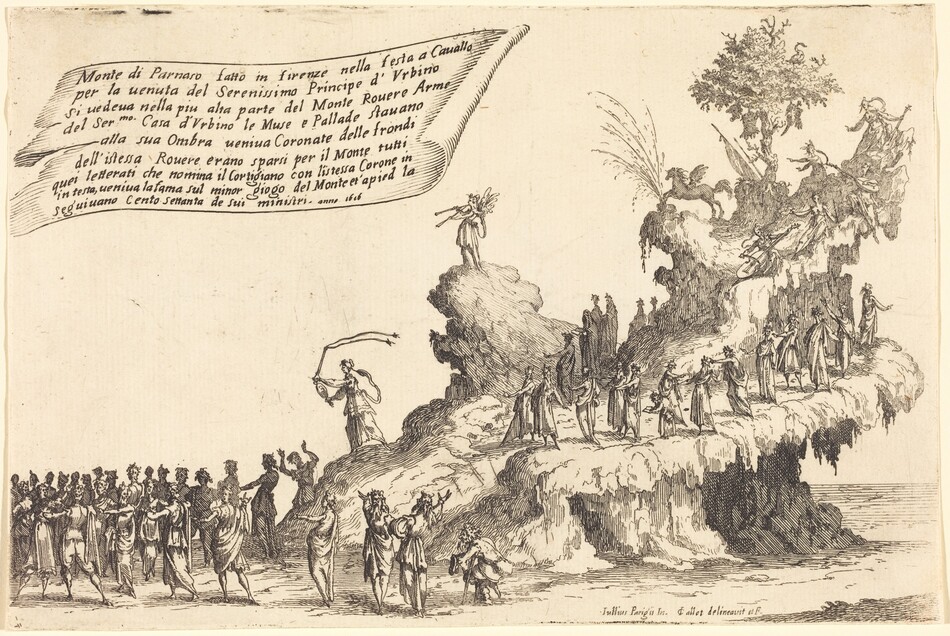 Monte di Parnaso fatto in firenze nella festa a Cauallo
per la uenuta del Serenissimo Principe d' Vrbino
Si uedeua nella piu alta parte del Monte Rouere Arme
del Ser.mo Casa d'Vrbino le Muse e Pallade stauano
alla sua Ombra ueniua Coronate delle frondi
dell'istessa Rouere erano sparsi per il Monte tutti
quei letterati che nomina il Cortigiano con l'istessa Corone in
in testa, ueniua la fama sul minor giogo del Monte et a pied la
seguiuano Cento settanta de sui ministri. anno 1616
Iullius Parigii In. Callot delineauit et F.